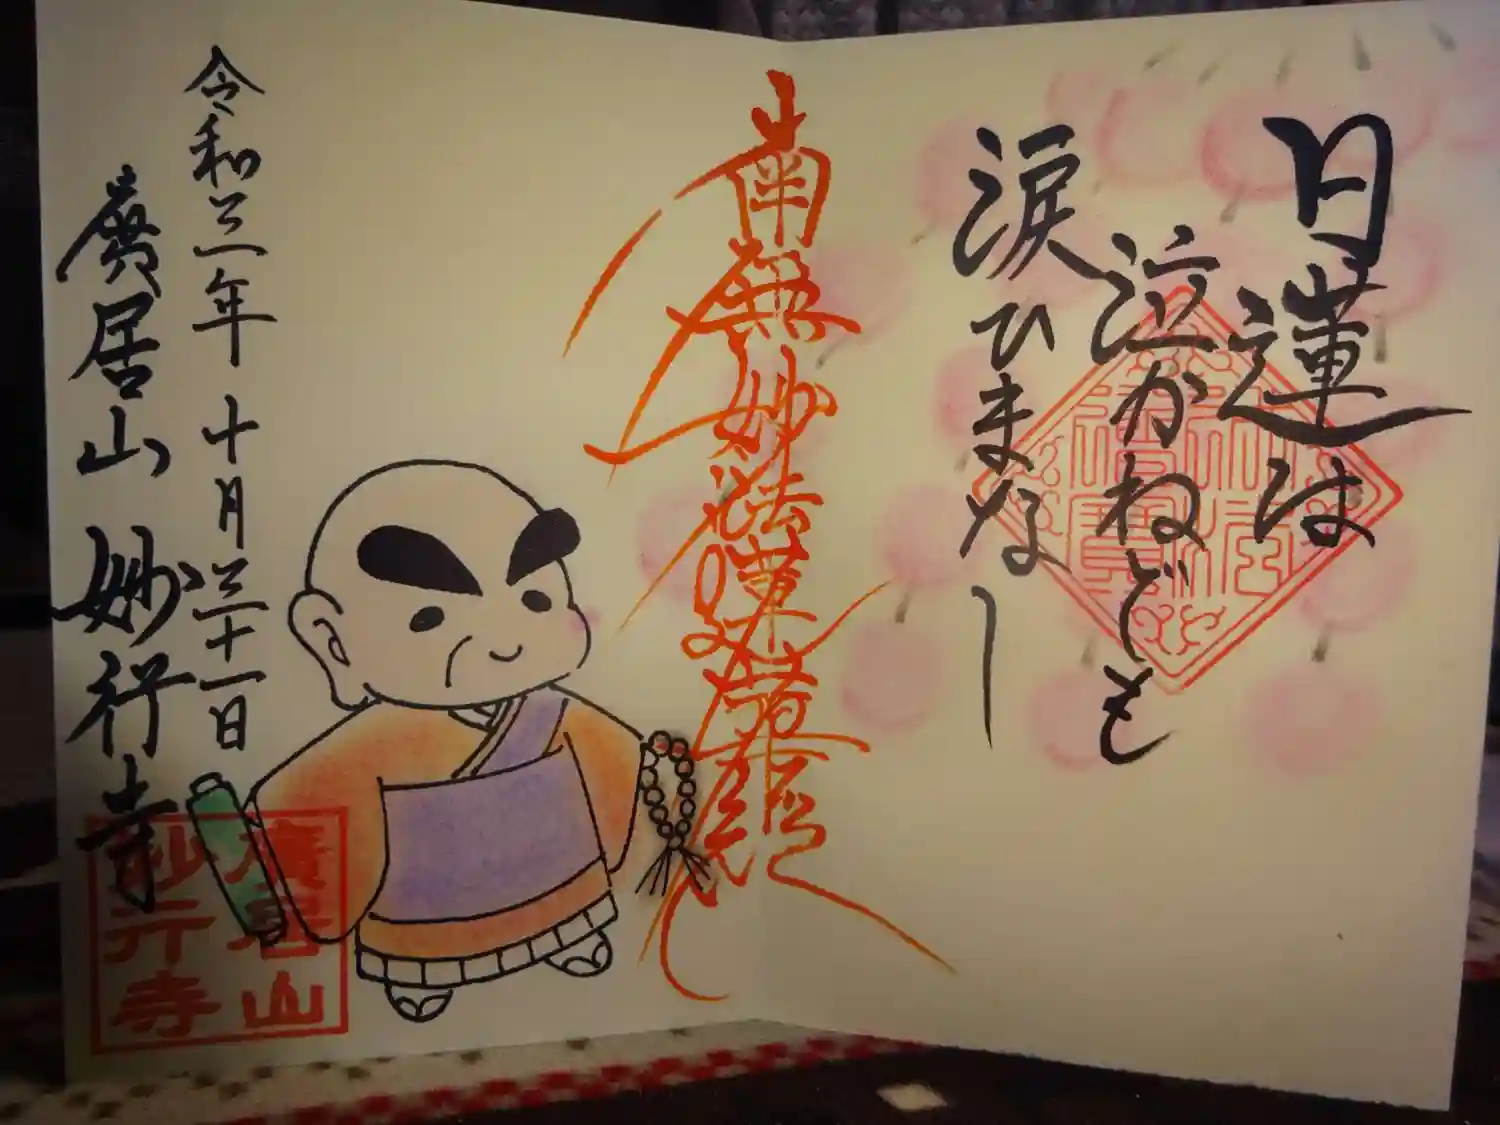 日蓮は
泣かねども
涙ひまなし
南無妙法蓮華経
令和三年十月三十一日
廣居山 妙行寺
廣居山
妙行寺